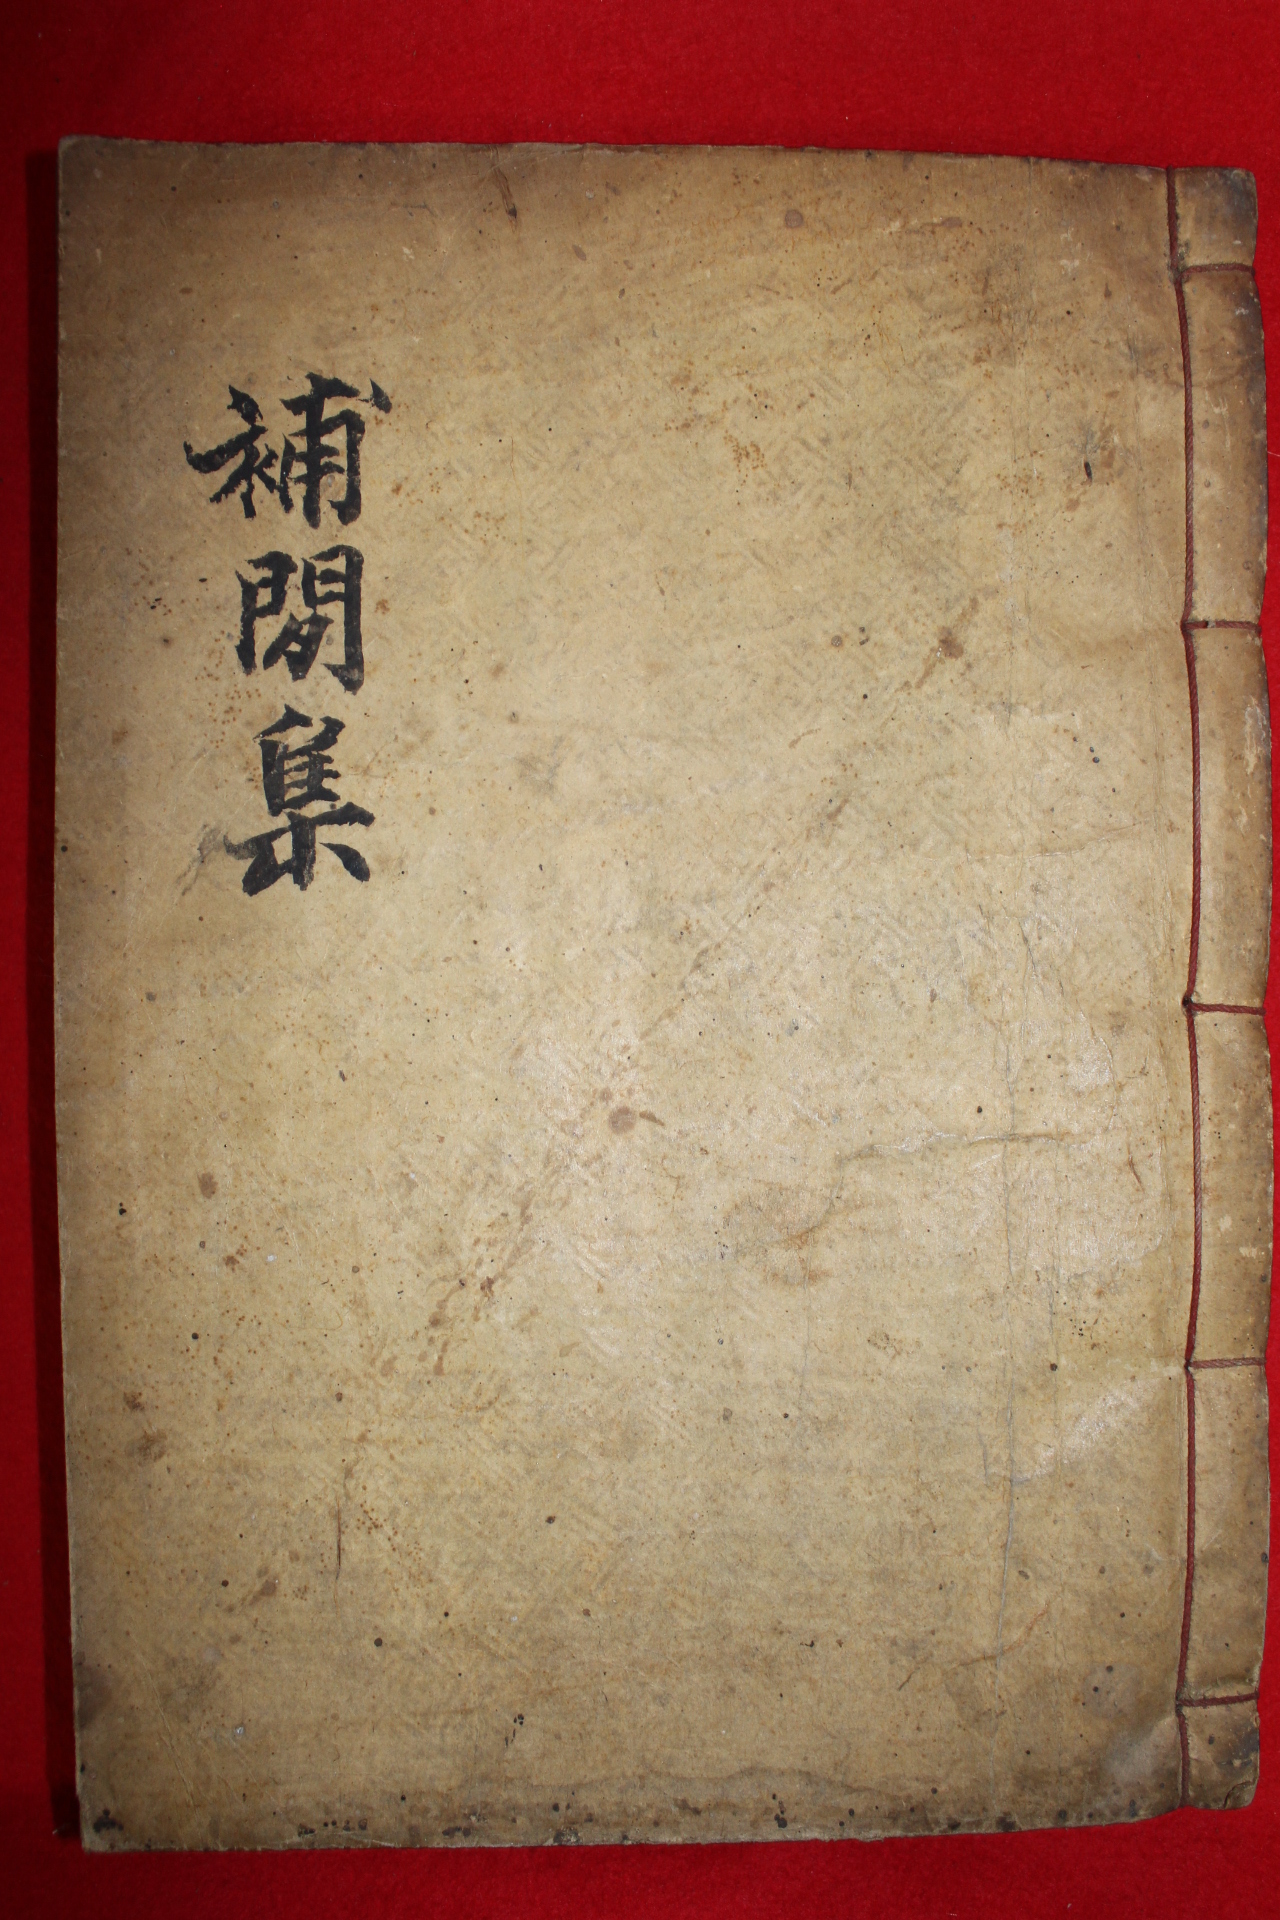 補閑集